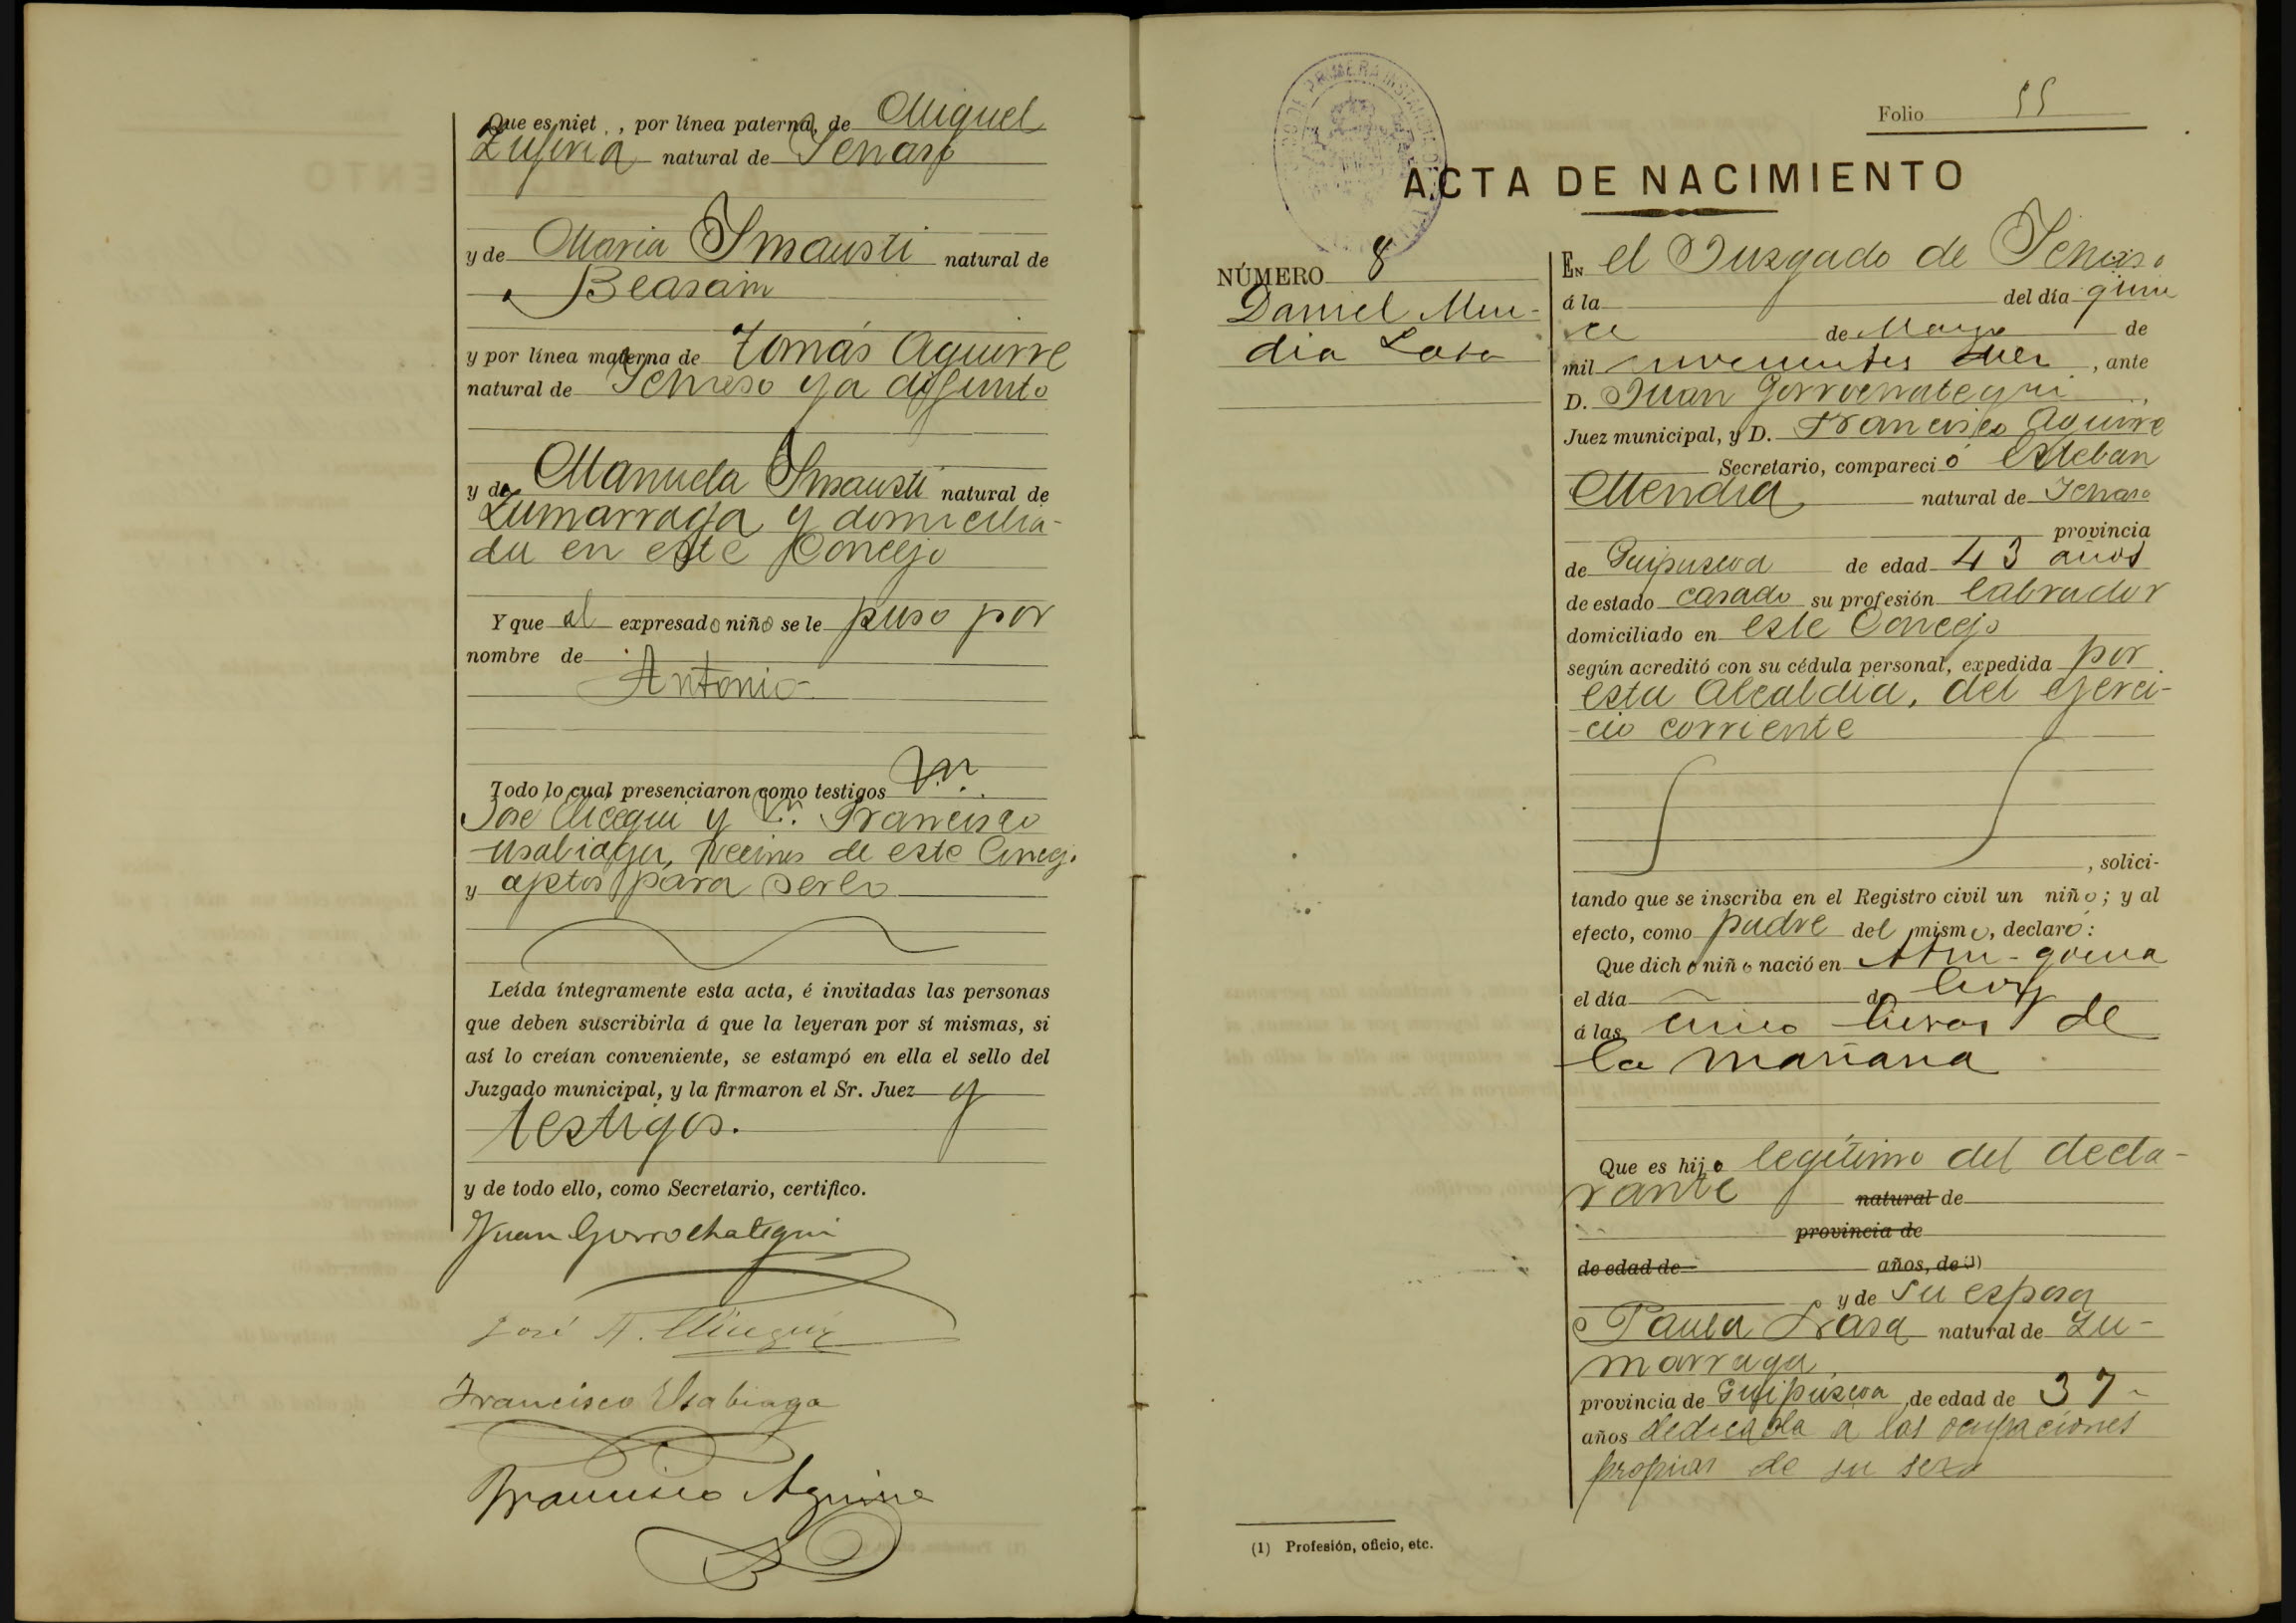 Que es niet , por línea paterna, de Miguel
Zufiria natural de Ichaso
y de Maria Ymausti natural de
Beasain
y por línea materna de Tomás Aguirre
natural de Ichaso ya difunto
y de Manuela Ymausti natural de
Zumarraga y domicilia-
da en este Concejo
Y que al expresado niño se le puso por
nombre de
Antonio
Todo lo cual presenciaron como testigos Dn.
José y Dn. Francisco
Usabiaga, vecinos de este Concejo
y aptos para serlo
Leída íntegramente esta acta, é invitadas las personas
que deben suscribirla á que la leyeran por sí mismas, si
así lo creían conveniente, se estampó en ella el sello del
Juzgado municipal, y la firmaron el Sr. Juez y
testigos.
y de todo ello, como Secretario, certifico.
Juan Gorrochategui
José A.
Francisco Usabiaga
Francisco Aguirre
Folio 55
ACTA DE NACIMIENTO
NÚMERO 8
Daniel Men-
dia Lasa
En el Juzgado de Ichaso
á la del día quin
ce de Marzo de
mil novecientos diez, ante
D. Juan Gorrochategui,
Juez municipal, y D. Francisco Aguirre
Secretario, compareció Esteban
Mendia natural de Ichaso
provincia
de Guipuzcoa de edad 43 años
de estado casado su profesión labrador
domiciliado en este Concejo
según acreditó con su cédula personal, expedida por
esta Alcaldia, del ejerci-
-cio corriente
, solici-
tando que se inscriba en el Registro civil un niño; y al
efecto, como padre del mismo, declaró:
Que dicho niño nació en
el día de hoy
á las cinco horas de
la mañana
Que es hijo legítimo del decla-
rante natural de
provincia de
de edad de años, de (1)
y de su esposa
Paula Lasa natural de Zu-
marraga
provincia de Guipúzcoa, de edad de 37
años dedicada a las ocupaciones
propias de su sexo
(1) Profesión, oficio, etc.